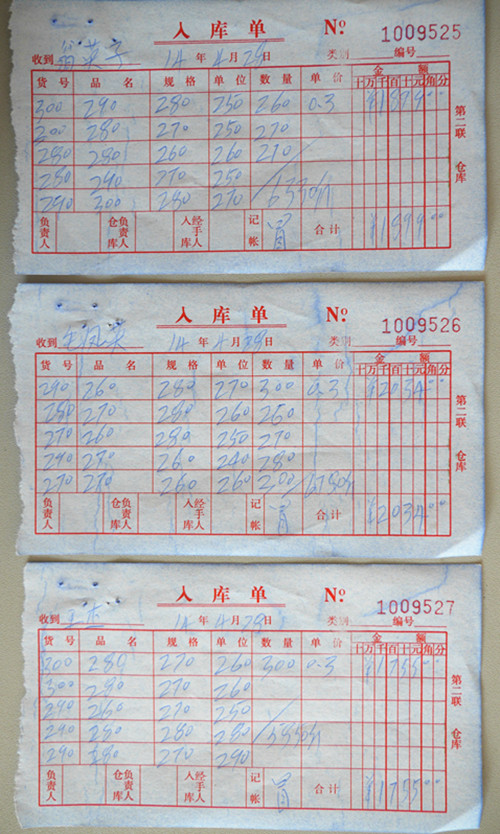 入库单 Nº 1009525
收到 翁英子 14年4月28日 类别 编号
货号 品名 规格 单位 数量 单价 金额 十万千百十元角分
300 290 280 250 260 0.3
200 280 270 250 270
280 280 260 260 210
280 290 270 250
290 300 280 270
负责人 仓库负责人 入库经手人 记帐 合计 ¥1899.00
第二联 仓库
入库单 Nº 1009526
收到 14年4月28日 类别 编号
货号 品名 规格 单位 数量 单价 金额 十万千百十元角分
290 260 280 270 300 0.3 ¥2034.00
280 270 280 260 250
270 260 280 250 270
290 270 260 240 280
270 270 260 260 200 6780斤
负责人 仓库负责人 入库经手人 记帐 合计 ¥2034.00
第二联 仓库
入库单 Nº 1009527
收到 14年4月28日 类别 编号
货号 品名 规格 单位 数量 单价 金额 十万千百十元角分
200 280 270 260 300 0.3 ¥1755.00
300 280 270 260
290 260 270 250
290 280 280 280
290 280 270 290
负责人 仓库负责人 入库经手人 记帐 合计 ¥1755.00
第二联 仓库